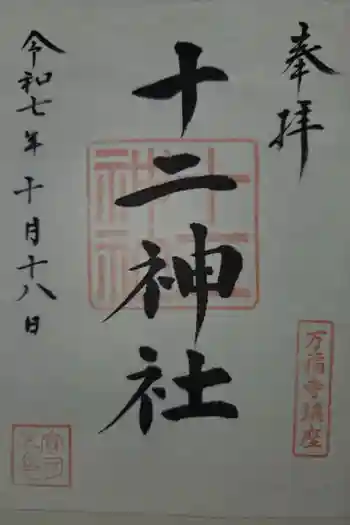 奉拝
十二神社
十二神社
万福寺鎮座
令和七年十月十八日